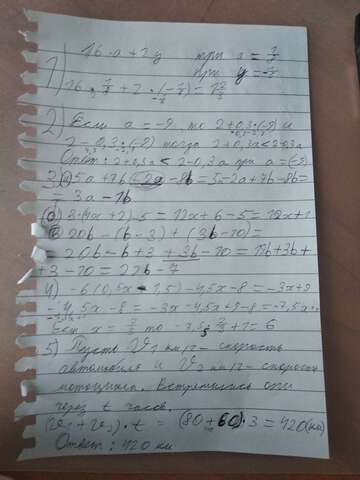 1) 16·a+2y при a = 
при y = 
2) Если a = -9, то 2+0,3·(-9) и
2-0,3·(-9) тогда 2+0,3a<2-0,3a
Ответ: 2+0,3a < 2-0,3a при a=(-9)
3. а) 5a+7b-2a-8b=5-2a+7b-8b=
= 3a - 1b
б) 3·(4x+2)-5=12x+6-5=12x+1
в) 20b-(b-3)+(3b-10)=
= 20b-b+3+3b-10=19b+3b+
+3-10=22b-7
4) -6(0,5x-1,5)-4,5x-8=-3x+9
-4,5x-8=-3x-4,5x+9-8=-7,5x+1
5) Пусть V₁ км/ч - скорость
автомобиля и V₂ км/ч - скорость
мотоцикла. Встретились они
через t часов.
(V₁+V₂)·t = (80+60)·3=420(км)
Ответ: 420 км